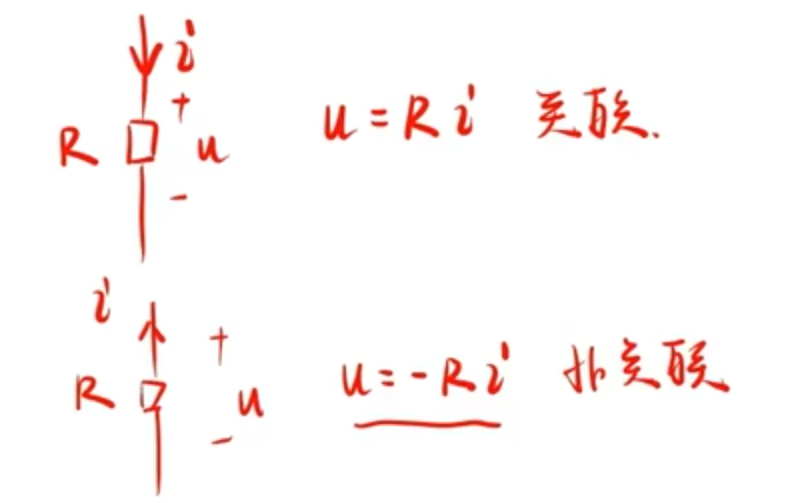 i
+
R u u = Ri 关联.
-
i
+
R u u = -Ri 非关联
-